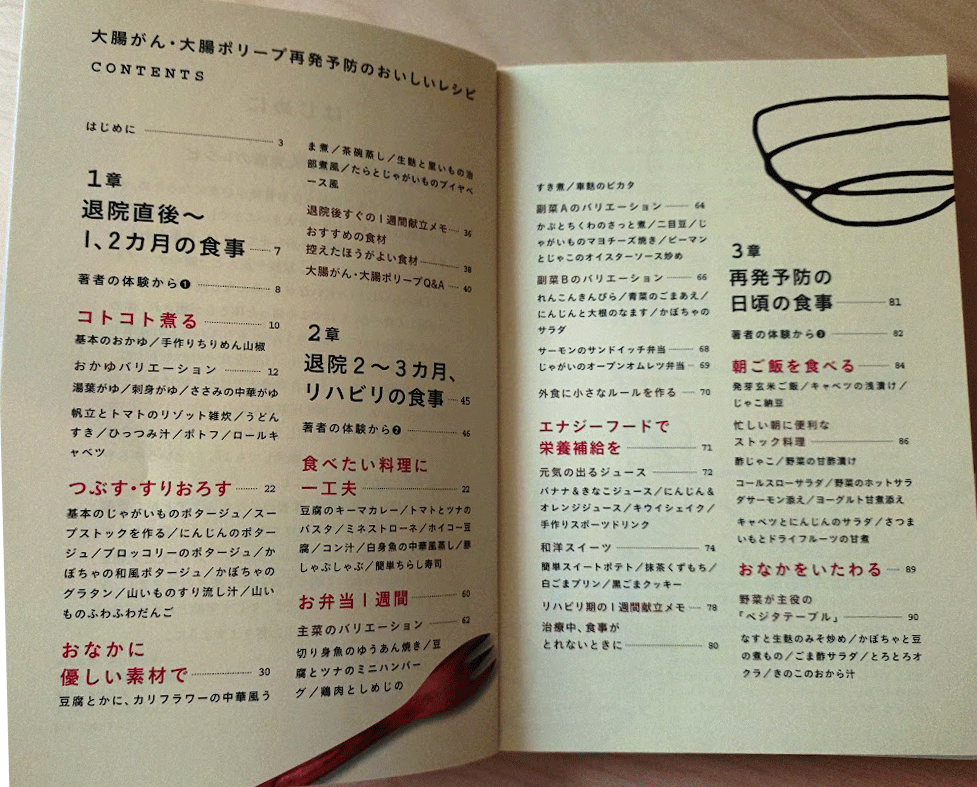 大腸がん・大腸ポリープ再発予防のおいしいレシピ
CONTENTS
はじめに 3
1章
退院直後〜
1、2カ月の食事 7
著者の体験から❶ 8
コトコト煮る 10
基本のおかゆ／手作りちりめん山椒
おかゆバリエーション 12
湯葉がゆ／刺身がゆ／ささみの中華がゆ
帆立とトマトのリゾット雑炊／うどん
すき／ひっつみ汁／ポトフ／ロールキ
ャベツ
つぶす・すりおろす 22
基本のじゃがいものポタージュ／スー
プストックを作る／にんじんのポター
ジュ／ブロッコリーのポタージュ／か
ぼちゃの和風ポタージュ／かぼちゃの
グラタン／山いものすり流し汁／山い
ものふわふわだんご
おなかに
優しい素材で 30
豆腐とかに、カリフラワーの中華風う
ま煮／茶碗蒸し／生麩と里いもの治
部煮風／たらとじゃがいものブイヤベ
ース風
退院後すぐの1週間献立メモ 36
おすすめの食材
控えたほうがよい食材 38
大腸がん・大腸ポリープQ&A 40
2章
退院2〜3カ月、
リハビリの食事 45
著者の体験から❷ 46
食べたい料理に
一工夫
豆腐のキーマカレー／トマトとツナの
パスタ／ミネストローネ／ホイコー豆
腐／コン汁／白身魚の中華風蒸し／豚
しゃぶしゃぶ／簡単ちらし寿司
お弁当1週間 60
主菜のバリエーション 62
切り身魚のゆうあん焼き／豆
腐とツナのミニハンバー
グ／鶏肉としめじの
すき煮／車麩のピカタ
副菜Aのバリエーション 64
かぶとちくわのさっと煮／二目豆／じ
ゃがいものマヨチーズ焼き／ピーマン
とじゃこのオイスターソース炒め
副菜Bのバリエーション 66
れんこんきんぴら／青菜のごまあえ／
にんじんと大根のなます／かぼちゃの
サラダ
サーモンのサンドイッチ弁当 68
じゃがいものオープンオムレツ弁当 69
外食に小さなルールを作る 70
エナジーフードで
栄養補給を 71
元気の出るジュース 72
バナナ＆きなこジュース／にんじん＆
オレンジジュース／キウイシェイク／
手作りスポーツドリンク
和洋スイーツ 74
簡単スイートポテト／抹茶くずもち／
白ごまプリン／黒ごまクッキー
リハビリ期の1週間献立メモ 78
治療中、食事が
とれないときに 80
3章
再発予防の
日頃の食事 81
著者の体験から❸ 82
朝ご飯を食べる 84
発芽玄米ご飯／キャベツの浅漬け／
じゃこ納豆
忙しい朝に便利な
ストック料理 86
酢じゃこ／野菜の甘酢漬け
コールスローサラダ／野菜のホットサラ
ダサーモン添え／ヨーグルト甘煮添え
キャベツとにんじんのサラダ／さつま
いもとドライフルーツの甘煮
おなかをいたわる 89
野菜が主役の
『ベジタテーブル』 90
なすと生麩のみそ炒め／かぼちゃと豆
の煮もの／ごま酢サラダ／とろとろオ
クラ／きのこのおから汁